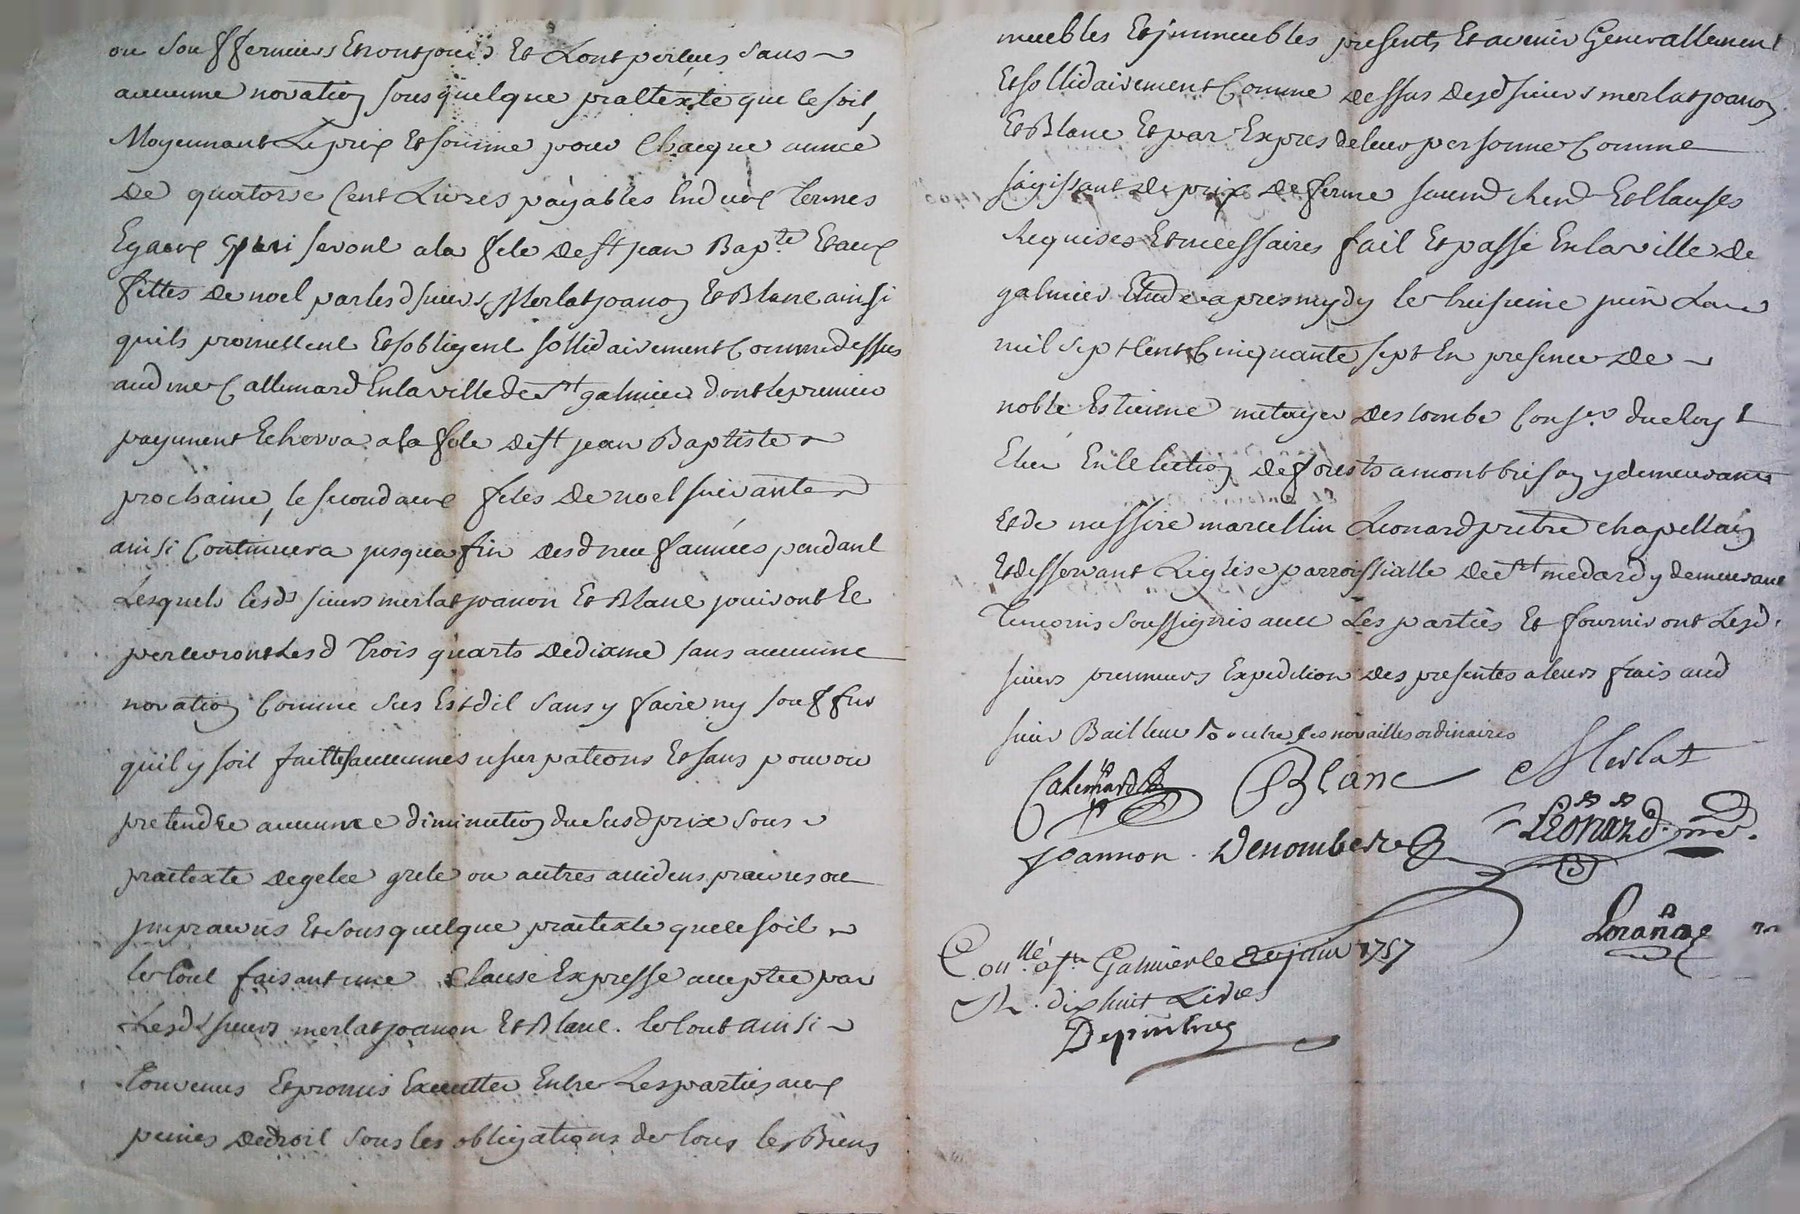 ou sous fermiers Et ont joui Et Lont perceus sans
aucunne novation sous quelque prætexte que ce soit,
Moyennant Le prix Et somme pour Chacque année
De quatorse Cent Livres payables En deux Termes
Egaux qui seront a la fete de st jean Bapte. Et aux
fettes de noel par lesd sieurs Merlat joanon Et Blanc ainsi
quils promettent Et sobligent sollidairement Comme dessus
aud me Callemard En la ville de st galmier dont le premier
payement Echerra a la fete de st jean Baptiste
prochaine, le second aux fetes de noel suivante
ainsi Continuera jusqua fin desd neuf années pendant
Lesquels lesds sieurs merlat joanon Et Blanc jouiront Et
percevront Lesd Trois quarts de dixme sans aucunne
novation Comme sus Est dit sans y faire ny souffrir
quil y soit faittes aucunnes usurpations Et sans pouvoir
pretendre aucunne diminution du susd prix sous
prætexte de gelée grele ou autres accidens præveus ou
jmpræveus Et sous quelque prætexte que ce soit
le tout faisant une Clause Expresse acceptée par
Lesds sieurs merlat joanon Et Blanc. le tout ainsi
Convenus Et promis Executter Entre Les parties aux
peines de droit sous les obligations de tous les Biens
meubles Et jmmeubles presents Et avenir Generallement
Et sollidairement Comme dessus desd sieurs merlat joanon
Et Blanc Et par Expres de leur personne Comme
sagissant de prix de ferme soumd Rend Et Clauses
Requises Et necessaires fait Et passé En la ville de
galmier Etude apres mydy le huisieme juin Lan
mil sept Cent Cinquante sept En presence de
noble Estienne metayer descombe Conser. du Roy
Eleu En lElection de forests a montbrison y demeurant
Et de messire marcellin Leonard prêtre chapellain
Et desservant Leglise parroissialle de st medard y demeurant
Temoins soussignés avec Les parties Et fourniront Lesd.
sieurs prenneurs Expedition des presentes a leurs frais aud
sieur Bailleur outre les novailles ordinaires
Calemard Blanc Merlat
Joannon. Leönärd
Conllé a st Galmier le juin 1757
R. dix huit Livres